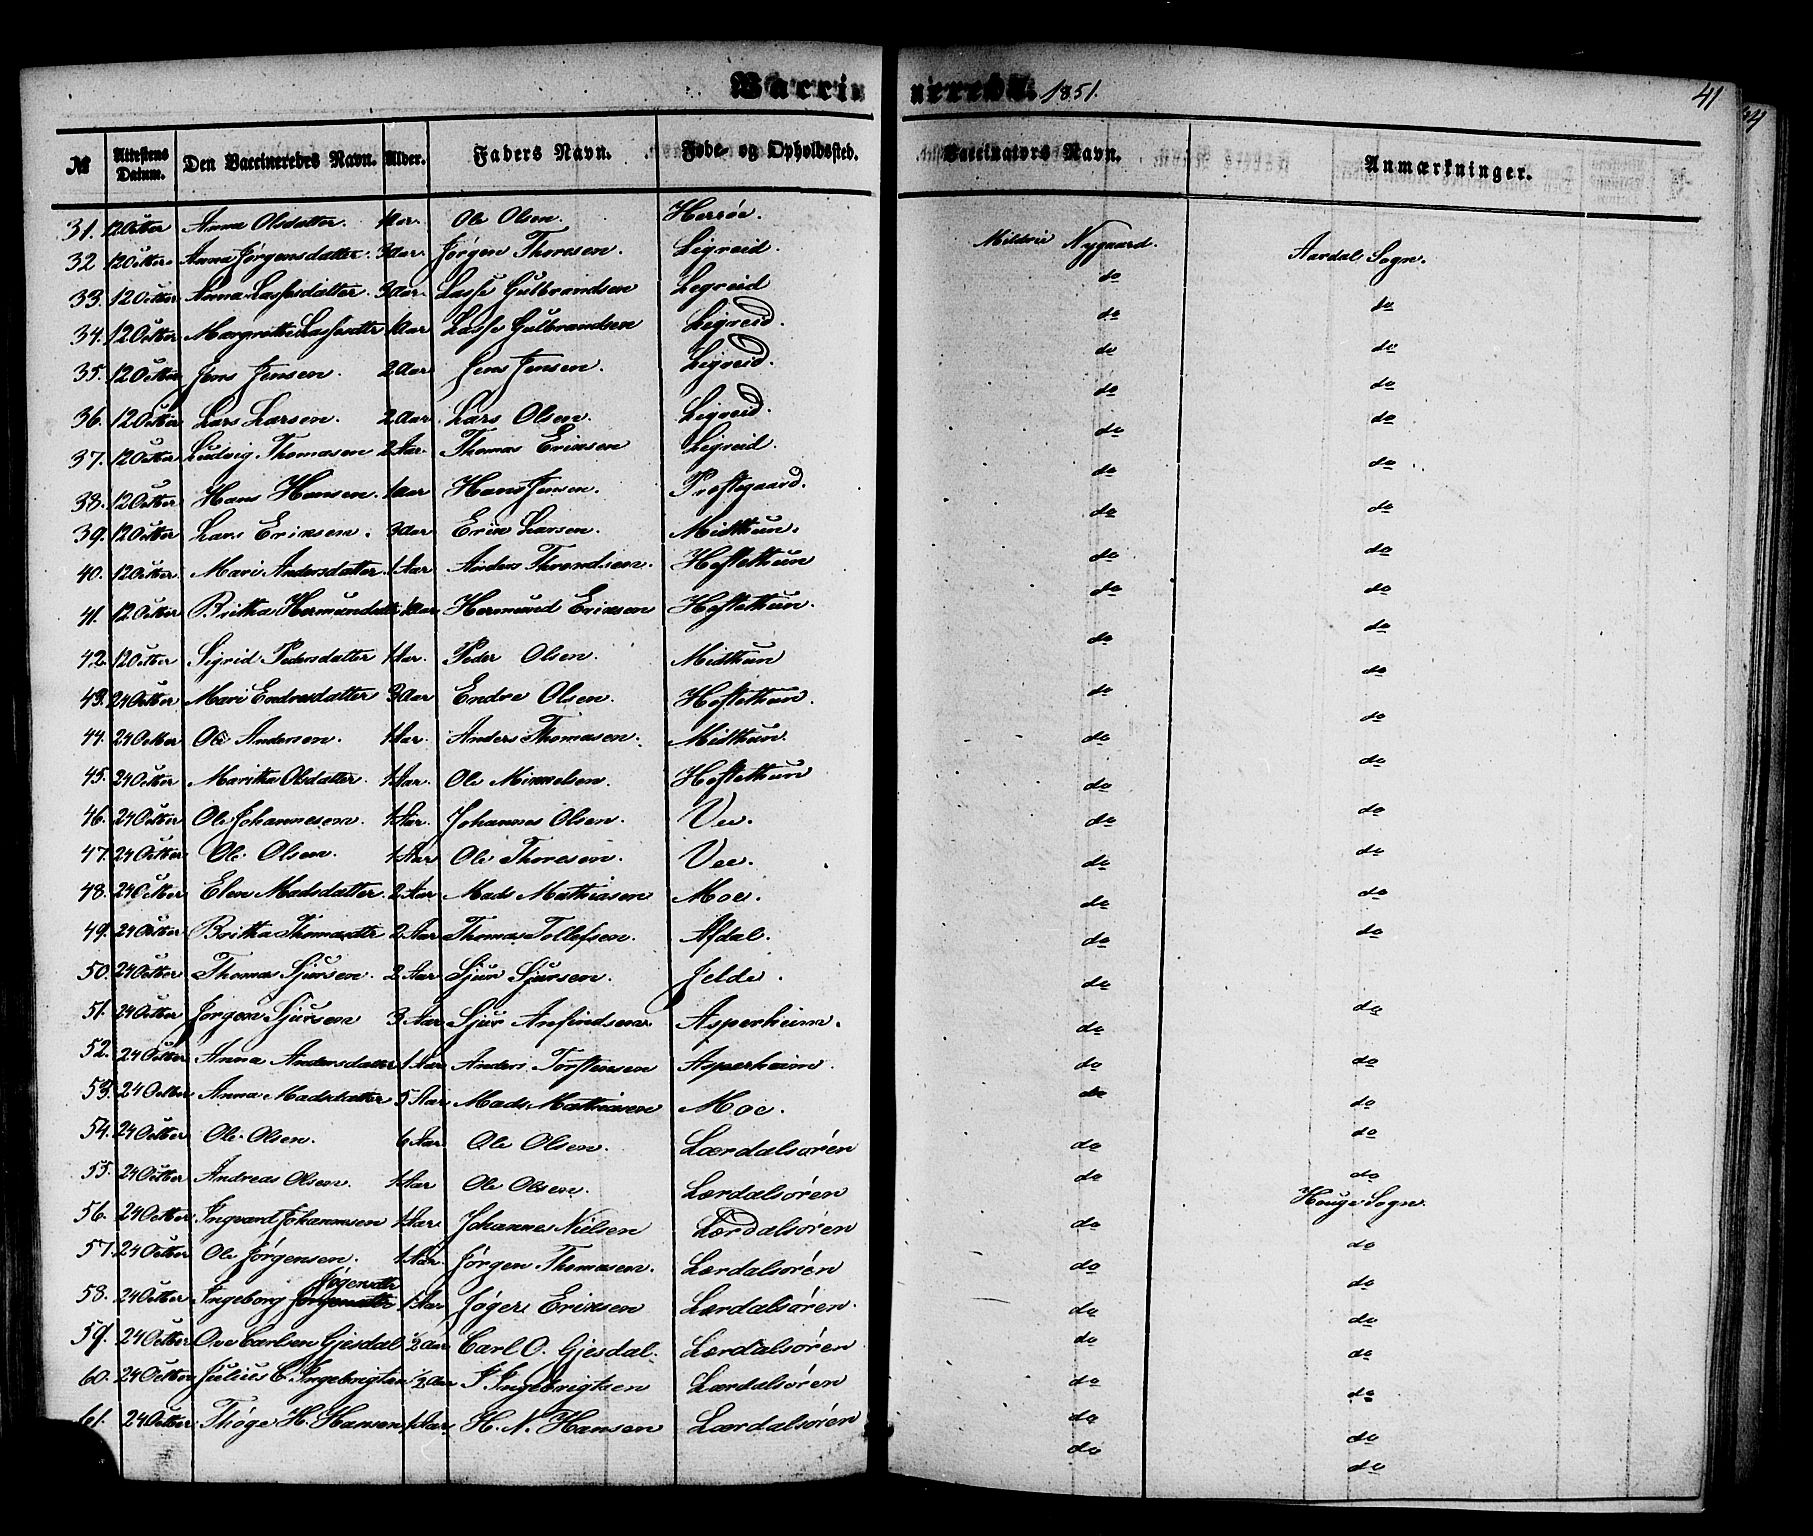 Vaccinerede. 1851. 41
№ Attestens Datum. Den Vaccineredes Navn. Alder. Faders Navn. Føde- og Opholdssted. Vaccinators Navn. Anmærkninger.
31. 12 Octber Anna Olsdatter. 1 Aar. Ole Olsen. Herröe. Nygaard. Aardal Sogn.
32 12 Octber Anna Jørgensdatter. 3 Aar. Jørgen Thoresen. Ligreid do do
33. 12 Octber Anna Lassesdatter 3 Aar. Lasse Gulbrandsen Legreid do do
34. 12 Octber Margrette Lassesdtr 1 Aar Lasse Gulbrandsen Ligreid. do do
35. 12 Octber Jens Jensen. 2 Aar Jens Jensen. Ligreid. do do
36. 12 Octber Lars Larsen. 2 Aar. Lars Olsen. Ligreid. do do
37. 12 Octber Ludvig Thomasen 2 Aar. Thomas Eriksen Ligreid. do do
38. 12 Octber Hans Hansen. 1 Aar Hans Jensen. Præstegaard. do do
39. 12 Octber Lars Eriksen. 3 Aar Erik Larsen. Midthun. do do
40. 12 Octber Mari Andersdatter. 1 Aar Anders Throndsen. Hestethun do do
41. 12 Octber Britha Hermundsdtr 1 Aar Hermund Eriksen Hestethun. do do
42. 12 Octber Sigrid Pedersdatter 1 Aar. Peder Olsen. Midthun do do
43. 24 Octber Mari Endresdatter 3 Aar Endre Olsen. Hestethun. do do
44. 24 Octber Ole Andersen. 1 Aar. Anders Thomasen. Midthun. do do
45. 24 Octber Maritha Olsdatter. 1 Aar. Ole Mikkelsen. Hestethun do do
46. 24 Octber Ole Johannesen 1 Aar. Johannes Olsen. Vee. do do
47. 24 Octber Ole Olsen. 1 Aar Ole Thoresen. Vee. do do
48. 24 Octber Elen Madsdatter. 2 Aar Mads Mathiasen Moe. do do
49. 24 Octber Britha Thomasdtr 2 Aar Thomas Tollefsen. Afdal. do do
50. 24 Octber Thomas Sjursen. 2 Aar Sjur Sjursen. Jelde. do do
51. 24 Octber Jørgen Sjursen 3 Aar Sjur Anfindsen. Asperheim. do do
52. 24 Octber Anna Andersdatter 1 Aar Anders Torstensen Asperheim. do do
53. 24 Octber Anna Madsdatter 5 Aar Mads Mathiasen Moe. do do
54. 24 Octber Ole Olsen. 6 Aar Ole Olsen. Lærdalsören do do
55. 24 Octber Andreas Olsen. 1 Aar Ole Olsen. Lærdalsören do Houge Sogn.
56. 24 Octber Ingvard Johannesen 1 Aar. Johannes Nielsen Lærdalsören do do
57. 24 Octber Ole Jørgensen. 1 Aar. Jørgen Thomasen. Lærdalsören do do
58. 24 Octber Ingeborg Jøgersdtr 1 Aar Jøger Eriksen Lærdalsören. do do
59. 24 Octber Ove Carlsen Gjesdal 1/2 Aar Carl O. Gjesdal. Lærdalsören do do
60. 24 Octber Julius C. Ingebrigtsen 1/2 Aar Ingebrigtsen Lærdalsören do do
61. 24 Octber Thøge H. Hansen 1 Aar. H. N. Hansen Lærdalsören do do